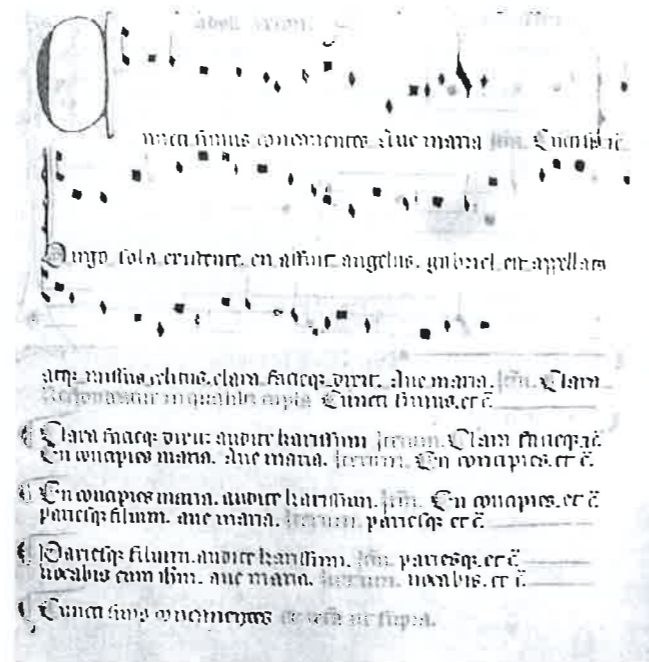 Cuncti simus concanentes Aue maria Cuncti sim᷑ ⁊c̄
Virgo sola existente. en affuit angelus. gabriel est appellat᷒
atq; missus celitus. clara facieq; dixit. Aue maria. Iteꝝ. Clara
Cuncti simus. et c̄
Clara facieq; dixit audite karissimi Iterum. Clara facieq; ⁊c̄
En concipies maria. Aue maria. Iterum. En concipies. et c̄.
En concipies maria. audite karissimi. En concipies. et c̄
pariesq; filium. aue maria. Iterum. pariesq; et c̄
Pariesq; filium. audite karissimi. pariesq; et c̄
uocabis eum ihm̄. aue maria. Iterum. uocabis. et c̄.
Cuncti simus concanentes ut supra.